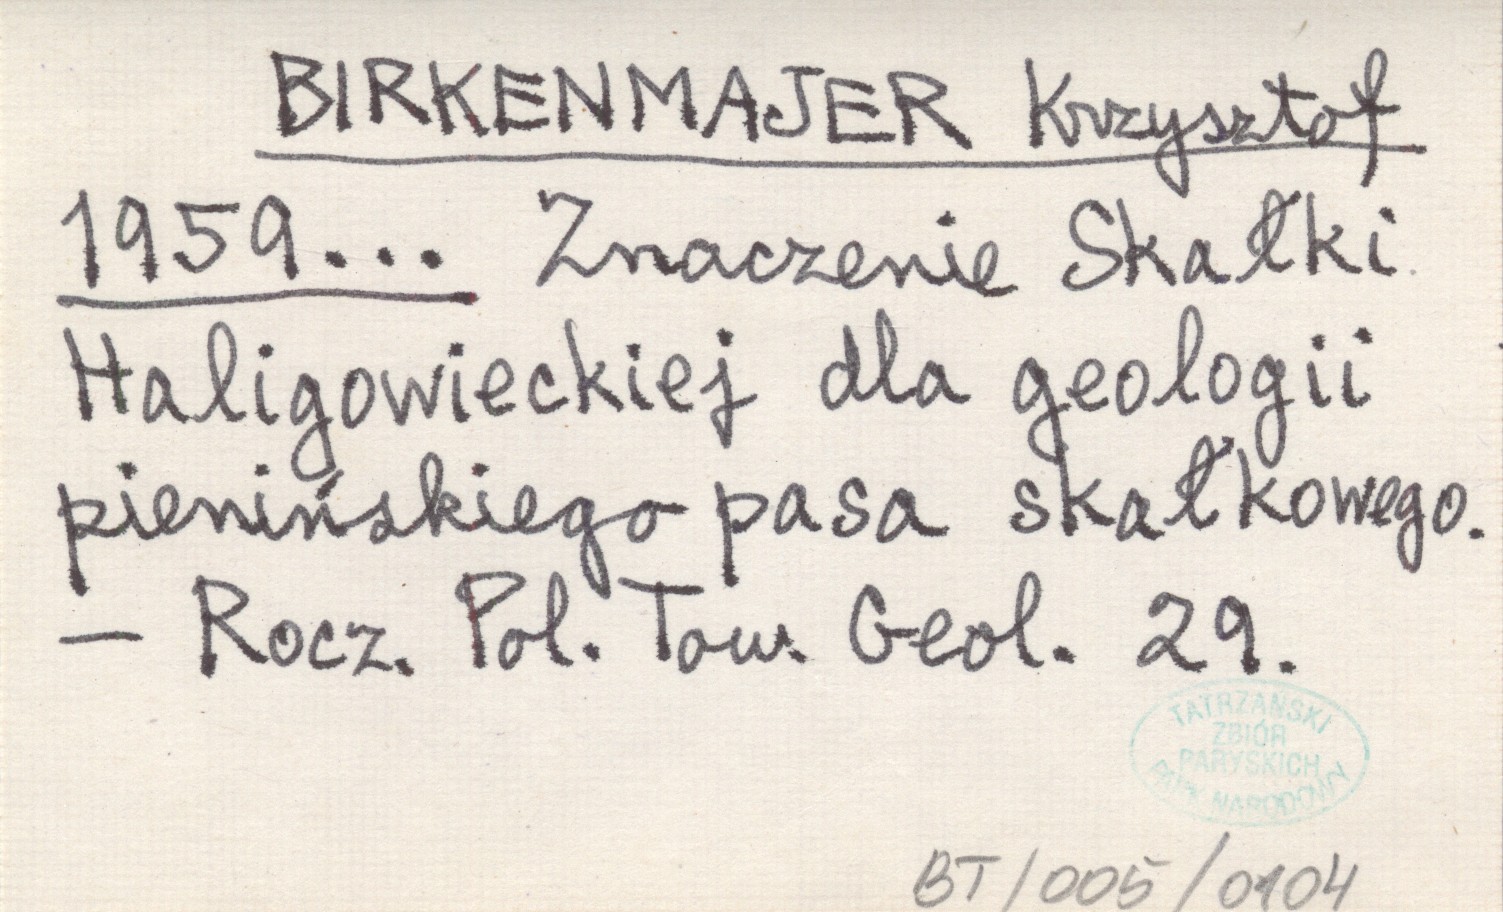 BIRKENMAJER Krzysztof
1959... Znaczenie Skałki
Haligowieckiej dla geologii
pienińskiego pasa skałkowego.
— Rocz. Pol. Tow. Geol. 29.
TATRZAŃSKI
ZBIÓR
PARYSKICH
PARK NARODOWY
BT/005/0104